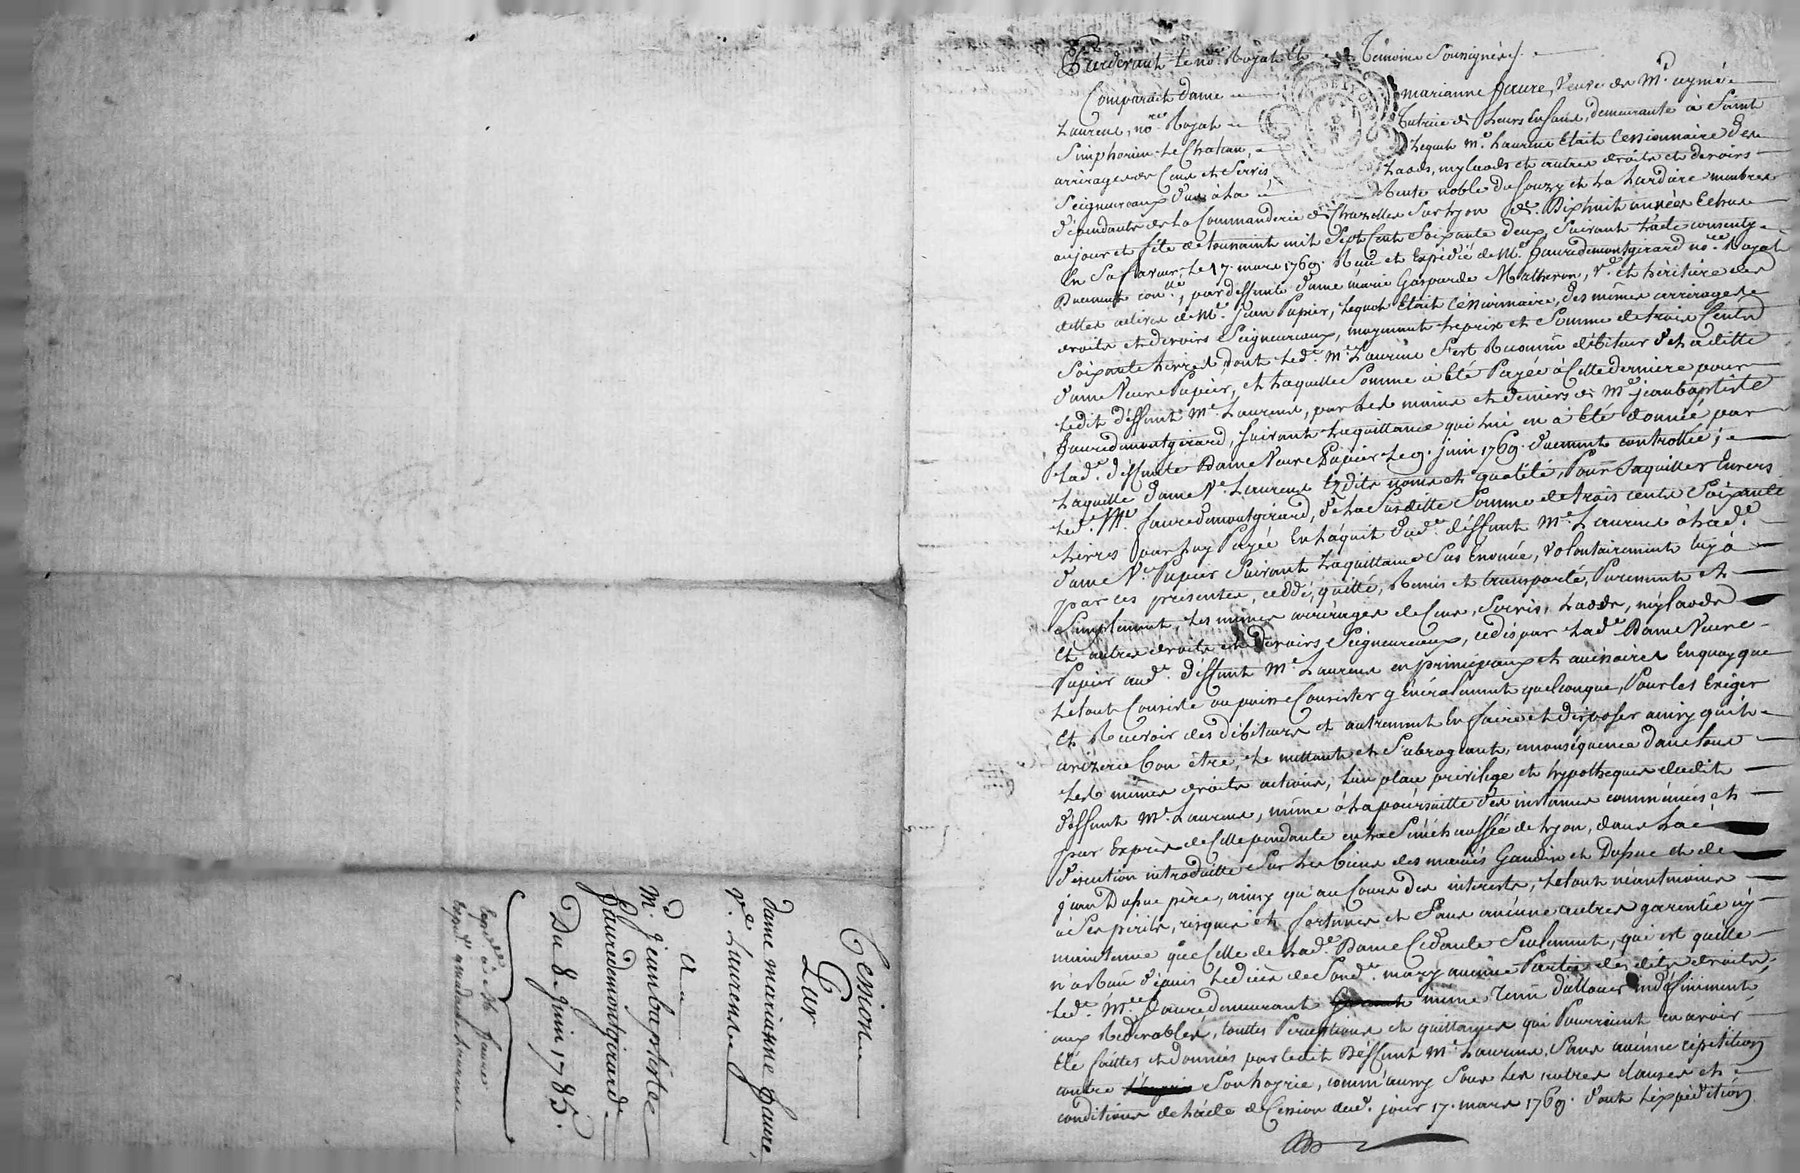 Pardevant le no.re Royal et Temoins Soussignés;
Comparait dame marianne faure, Veuve de M.e aymé
Laurens, no.re Royal Tutrice de Leurs Enfans, demeurante à Saint
Simphorien-Le Chateau, Lequel M.e Laurens Etait Cessionnaire des
arrerages de Cens et Servis Laods, mylaods et autres droits et devoirs
Seigneuriaux dus à la Rente noble du Couzy et La Lardiere membres
dépendants de La Commanderie de Chazelles Sur Lyon de Dixhuit années Echues
au jour et fête de toussaint mil Sept Cent Soixante deux, Suivant L'acte consenty
En Sa faveur, Le 17. mars 1769. Reçu et Expédié de M.e fauredemontgirard no.re Royal
Duement con.llé, par deffunte dame marie Gasparde Matheron, v.e et héritière des
dettes actives de M.e jean Papier, Lequel Etait Cessionnaire, des mêmes arrérages
droits et devoirs Seigneuriaux, moyennant Le prix et Somme de trois Cents
Soixante Livres, dont Led. M.e Laurens S'est Reconnu débiteur de Laditte
dame Veuve Papier, et Laquelle Somme à Eté Payée à Cette dernière pour
Ledit déffunt M.e Laurens, par Les mains et deniers de M.e jeanbaptiste
fauredemontgirard, Suivant La quittance qui Lui en à été donnée, par
Lad.e deffunte Dame Veuve Papier Le 9. juin 1769. duement controllée;
Laquelle dame V.e Laurens Esdits noms et qualité, Pour S'aquitter Envers
Led. M.e fauredemontgirard, de La Susditte Somme de trois cents Soixante
Livres pour Luy Payée En L'aquit dud. déffunt M.e Laurens à Lad.e
dame V.e Papier Suivant La quittance Sus énoncée, Volontairement à
par ces présentes, ceddé, quitté, Remis et transporté, Purement et
Simplement, Les mêmes arrérages de Cens, Servis, Laods, mylaods
Et autres droits et devoirs Seigneuriaux, cedés par Lad.e Dame Veuve
Papier aud. déffunt M.e Laurens en principaux et accessoires En quoy que
Le tout Consiste ou puisse Consister généralement quelconque, Pour Les Exiger
Et Recevoir des débiteurs et autrement En faire et disposer ainsy qu'il
avizera bon être, Le mettant et Subrogeant, en conséquence dans tous
Les mêmes droits actions, Lieu place privilege et hypotheques dudit
déffunt M.e Laurens, même à La poursuitte des instances commencées et
par Exprès de Celle pendante en La Sénéchaussée de Lyon, dans La
discution introduitte Sur Les biens des mariés Gaudin et Dupuc et de
jean Dupuc père, ainsy qu'au Cours des interets, Le tout néantmoins
à Ses périls, risques et fortunes et Sans aucune autres garentie
maintenue que Celle de Lad.e Dame Cédante Seulement, qui est quelle
n'a Reçu depuis Le décès de Sond. mary aucune Partie desdits droits
Led. M.e faure demeurant même Tenu d'allouer indéfiniment
aux Redevables, touttes Perceptions et quittances qui Pourraient en avoir
Eté faittes et données par Ledit Déffunt M.e Laurens, Sans aucune répétition
contre Son hoyrie, comm'aussy Sous Les autres clauses et
conditions de L'acte de Cession dud. jour 17. mars 1769. dont L'expédition
Cession
Par
dame marianne faure,
v.e Laurens
a
M.e jeanbaptiste
fauredemontgirard
Du 8 juin 1785.
Expd. à M. faure
Expd. a madame Laurens